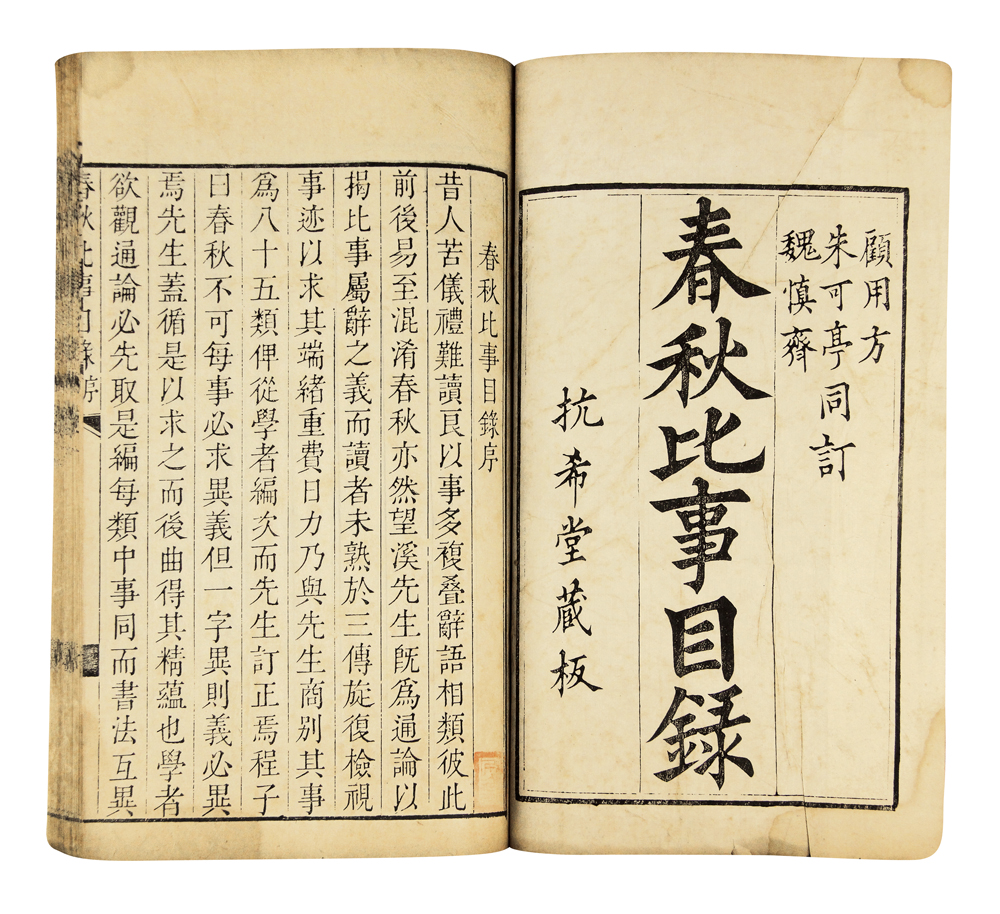 顧用方
朱可亭同訂
魏慎齋
春秋比事目錄
抗希堂藏板
春秋比事目錄序
昔人苦儀禮難讀良以事多複疊辭語相類彼此
前後易至混淆春秋亦然望溪先生旣爲通論以
揭比事屬辭之義而讀者未熟於三傳旋復檢視
事迹以求其端緒重費日力乃與先生商别其事
爲八十五類俾從學者編次而先生訂正焉程子
曰春秋不可每事必求異義但一字異則義必異
焉先生蓋循是以求之而後曲得其精蘊也學者
欲觀通論必先取是編每類中事同而書法互異
春秋比事目錄序